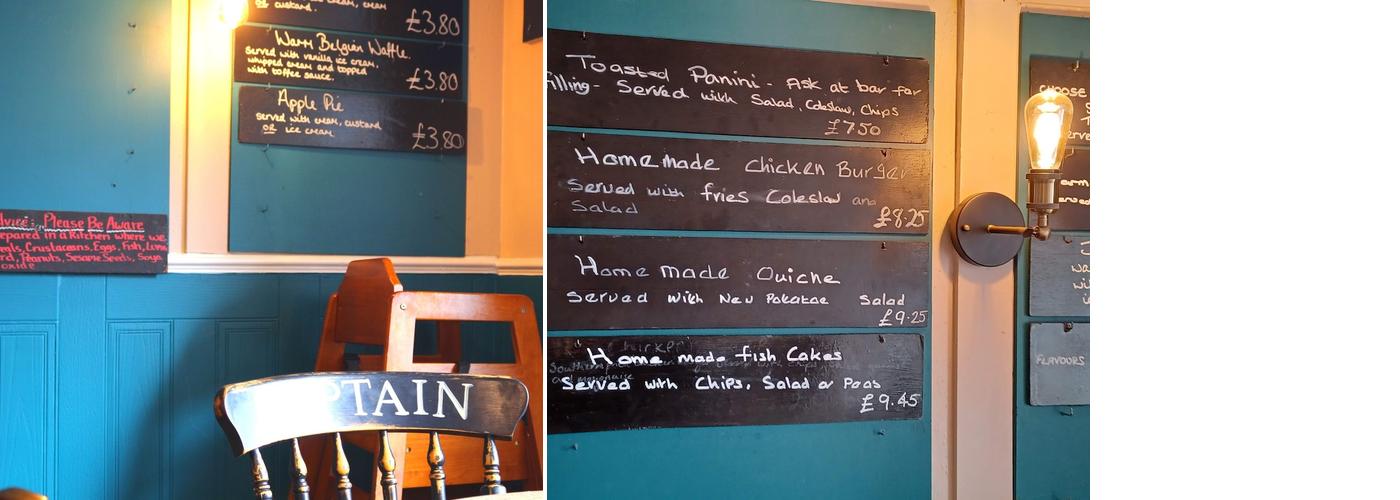 OR custard.
£3.80
Warm Belgian Waffle.
Served with vanilla ice cream,
whipped cream and topped
with toffee sauce.
£3.80
Apple Pie
served with cream, custard
OR ice cream
£3.80
Please Be Aware
in a Kitchen where we
Crustaceans, Eggs, Fish,
Peanuts, Sesame Seeds, Soya
TAIN
Toasted Panini - Ask at bar for
filling - Served with Salad, Coleslaw, Chips
£7.50
Homemade Chicken Burger
Served with fries Coleslaw and
Salad
£8.25
Home made Quiche
Served with New Potatoe Salad
£9.25
Home made fish Cakes
Served with Chips, Salad or Peas
£9.45
CHOOSE
FLAVOURS